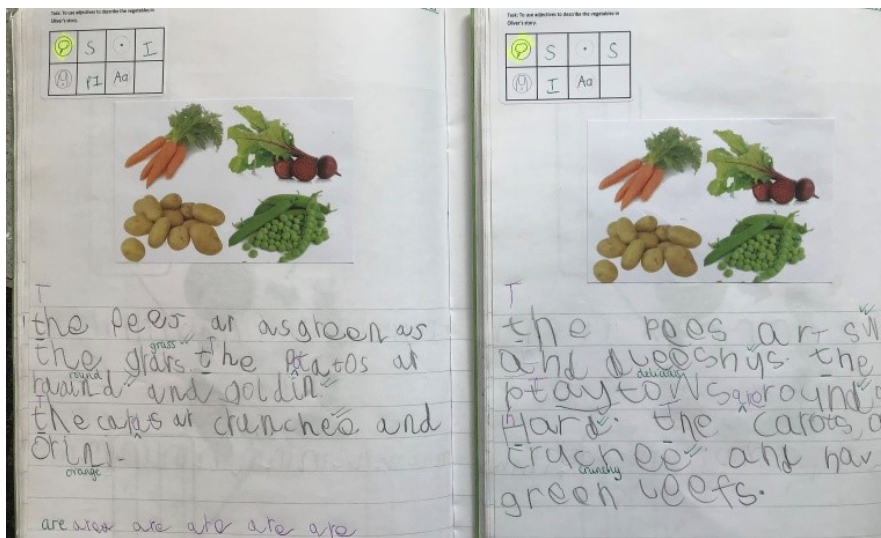 Task: To use adjectives to describe the vegetables in
Oliver's story.
S I
PI Aa
T
the pees ar as green as
grass
the grars. the ptatos ar
round
rouind and goldin.
the carats ar crunchee and
orinj.
orange
are are are are are are
Task: To use adjectives to describe the vegetables in
Oliver's story.
S S
I Aa
T
the pees ar
and dleeshys. the
delicious
ptaytows are round
Hard. the carots
cruchee and hav
crunchy
green leefs.